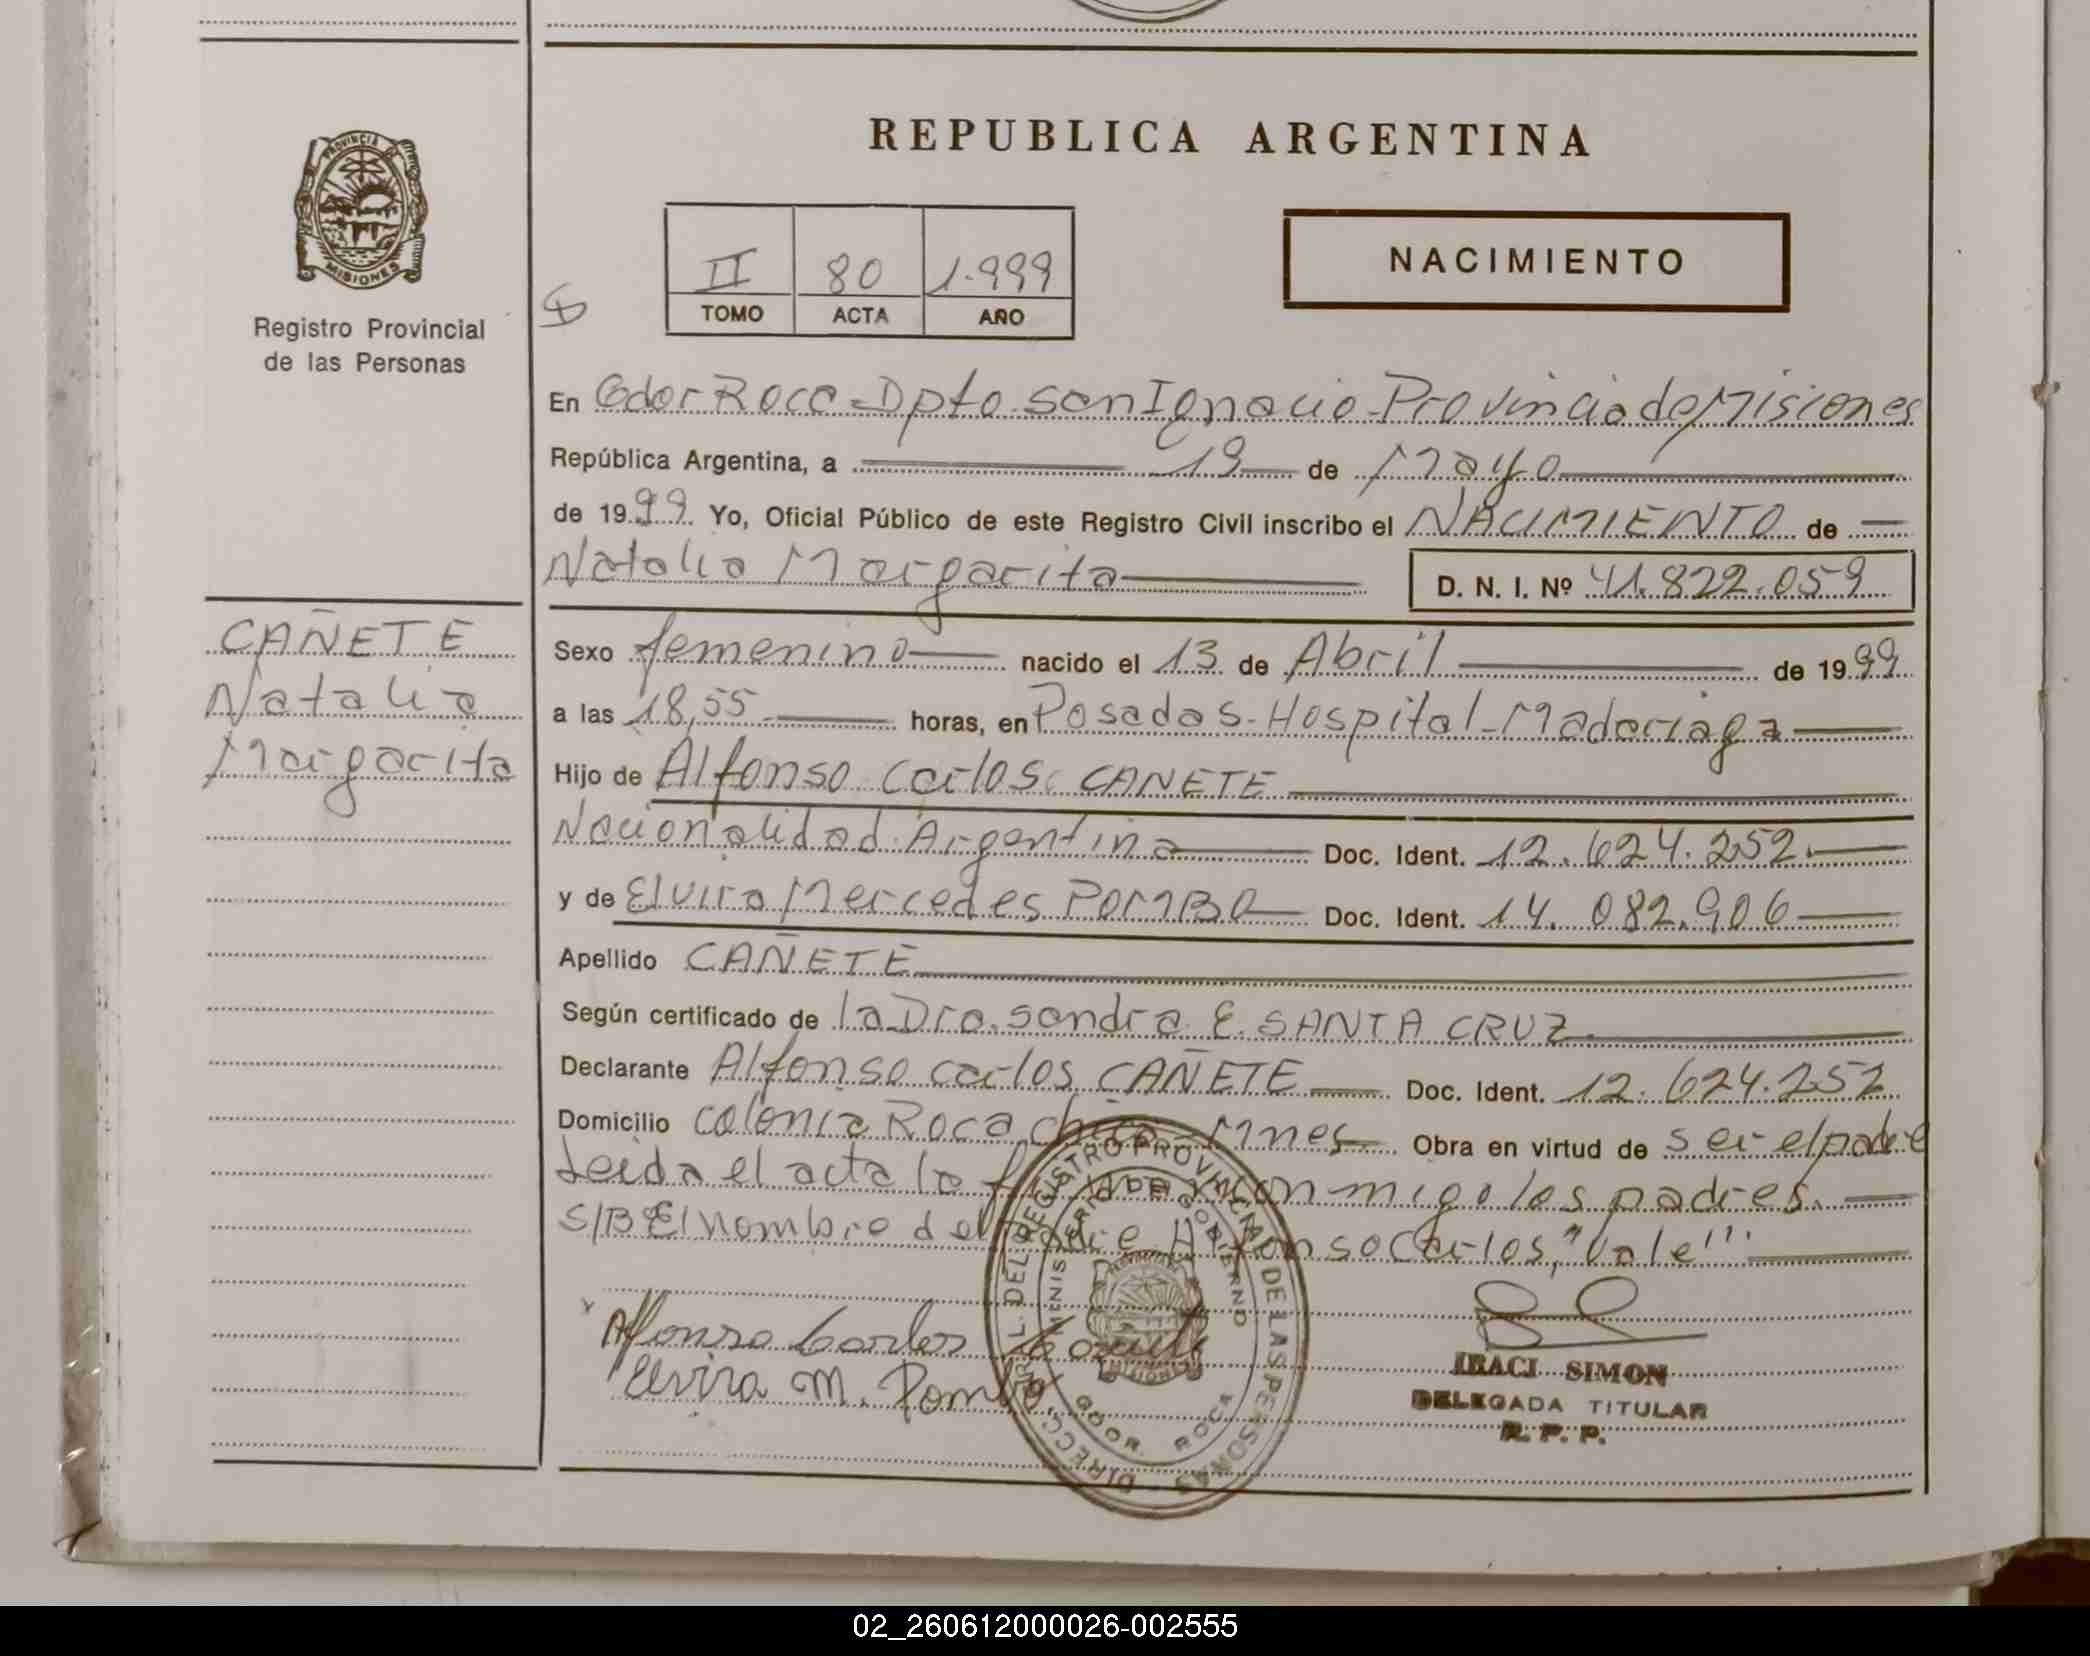 REPUBLICA ARGENTINA
PROVINCIA DE
MISIONES
Registro Provincial
de las Personas
II 80 1.999
TOMO ACTA AÑO
NACIMIENTO
En Gdor Roca - Dpto San Ignacio - Provincia de Misiones
República Argentina, a 19 de Mayo
de 1999 Yo, Oficial Público de este Registro Civil inscribo el NACIMIENTO de
Natalia Margarita D. N. I. Nº 41.822.059
CAÑETE
Natalia
Margarita
Sexo femenino nacido el 13 de Abril de 1999
a las 18,55 horas, en Posadas - Hospital - Madariaga
Hijo de Alfonso Carlos CAÑETE
Nacionalidad Argentina Doc. Ident. 12.624.252.
y de Elvira Mercedes POMBO Doc. Ident. 14.082.906
Apellido CAÑETE
Según certificado de la Dra. Sandra E. SANTA CRUZ
Declarante Alfonso Carlos CAÑETE Doc. Ident. 12.624.252
Domicilio Colonia Roca chica - Mnes Obra en virtud de ser el padre
Leida el acta la conmigo los padres.
S/B El nombre del padre Alfonso Carlos, "Vale"
Alfonso Carlos Cañete
Elvira M. Pombo
DIRECC. GRAL. DEL REGISTRO PROVINCIAL DE LAS PERSONAS
MINISTERIO DE GOBIERNO
MISIONES
GDOR. ROCA
IRACI SIMON
DELEGADA TITULAR
R. P. P.
02_260612000026-002555